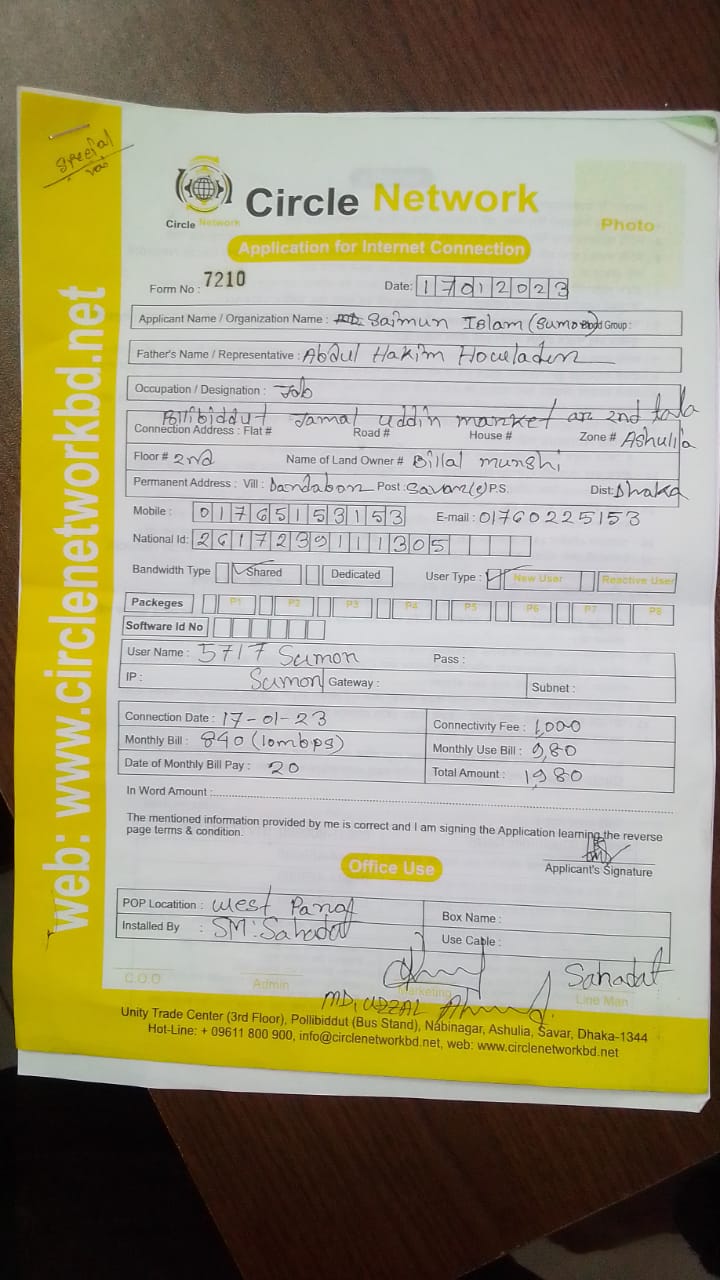 special
Circle Network
Circle Network
Photo
Application for Internet Connection
Form No : 7210
Date: 17012023
Applicant Name / Organization Name : Saimun Islam (Sumon) Blood Group :
Father's Name / Representative : Abdul Hakim Howlader
Occupation / Designation : Job
Pollibiddut Jamal uddin market ar 2nd tala
Connection Address : Flat # Road # House # Zone # Ashulia
Floor # 2nd Name of Land Owner # Billal munshi
Permanent Address : Vill : Dandabor Post : Savar(e) P.S. Dist: Dhaka
Mobile : 01765153153 E-mail : 01760225153
National Id: 2617239111305
Bandwidth Type Shared Dedicated User Type : New User Reactive User
Packeges P1 P2 P3 P4 P5 P6 P7 P8
Software Id No
User Name : 5717 Sumon Pass :
IP : Sumon Gateway : Subnet :
Connection Date : 17-01-23 Connectivity Fee : 1,000
Monthly Bill : 840 (10mbps) Monthly Use Bill : 9,80
Date of Monthly Bill Pay : 20 Total Amount : 1980
In Word Amount :
The mentioned information provided by me is correct and I am signing the Application learning the reverse
page terms & condition.
Applicant's Signature
Office Use
POP Locatition : west Panof Box Name :
Installed By : SM: Sahadat Use Cable :
Sahadat
C.O.O Admin Marketing Line Man
MD, UZZAL Ahmed
Unity Trade Center (3rd Floor), Pollibiddut (Bus Stand), Nabinagar, Ashulia, Savar, Dhaka-1344
Hot-Line: + 09611 800 900, info@circlenetworkbd.net, web: www.circlenetworkbd.net
web: www.circlenetworkbd.net